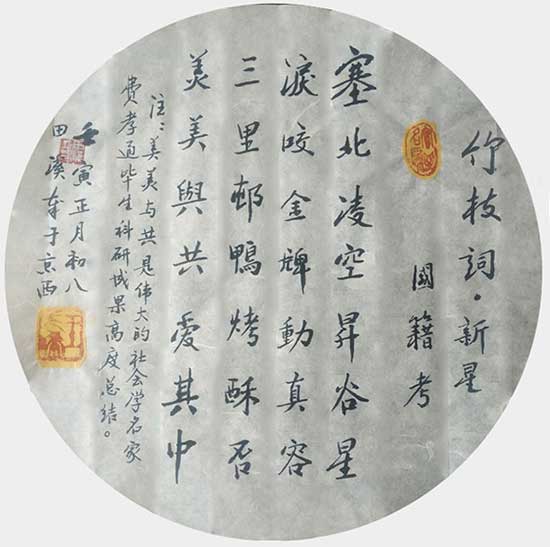 竹枝詞·新星
國籍考
塞北凌空昇谷星
淚咬金牌動真容
三里邨鴨烤酥否
美美與共愛其中
注：美美与共是伟大的社会学名家
费孝通毕生科研城果高度总结。
壬寅正月初八
田溪于京西